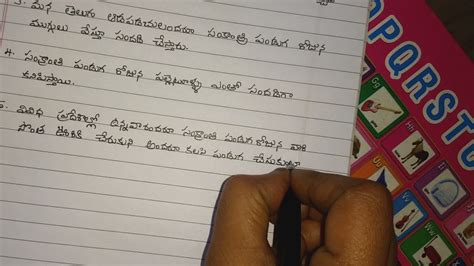 3. మన తెలుగు ఆడపడుచులందరూ సంక్రాంతి పండుగ రోజున
ముగ్గులు వేస్తూ సందడి చేస్తారు.
4. సంక్రాంతి పండుగ రోజున పల్లెటూళ్ళు ఎంతో సందడిగా
కనిపిస్తాయి.
5. వివిధ ప్రదేశాల్లో ఉన్నవారందరూ సంక్రాంతి పండుగ రోజున వారి
సొంత ఊరికి చేరుకుని అందరూ కలసి పండుగ చేసుకుంటా
PQRSTU